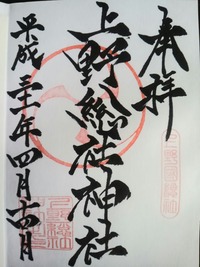 奉拝
上野總社神社
平成二十一年四月